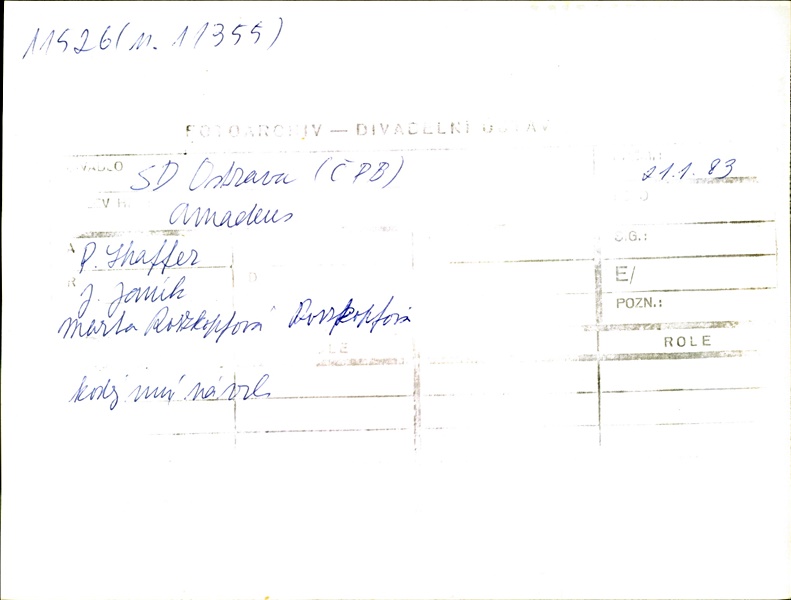 11526 (n. 11355)
FOTOARCHIV — DIVADELNÍ ÚSTAV
SD Ostrava (ČPB)
21.1.83
Amadeus
P. Shaffer
S.G.:
J. Janík
E/
POZN.:
Marta Roszkopfová Roszkopfová
ROLE
návrh